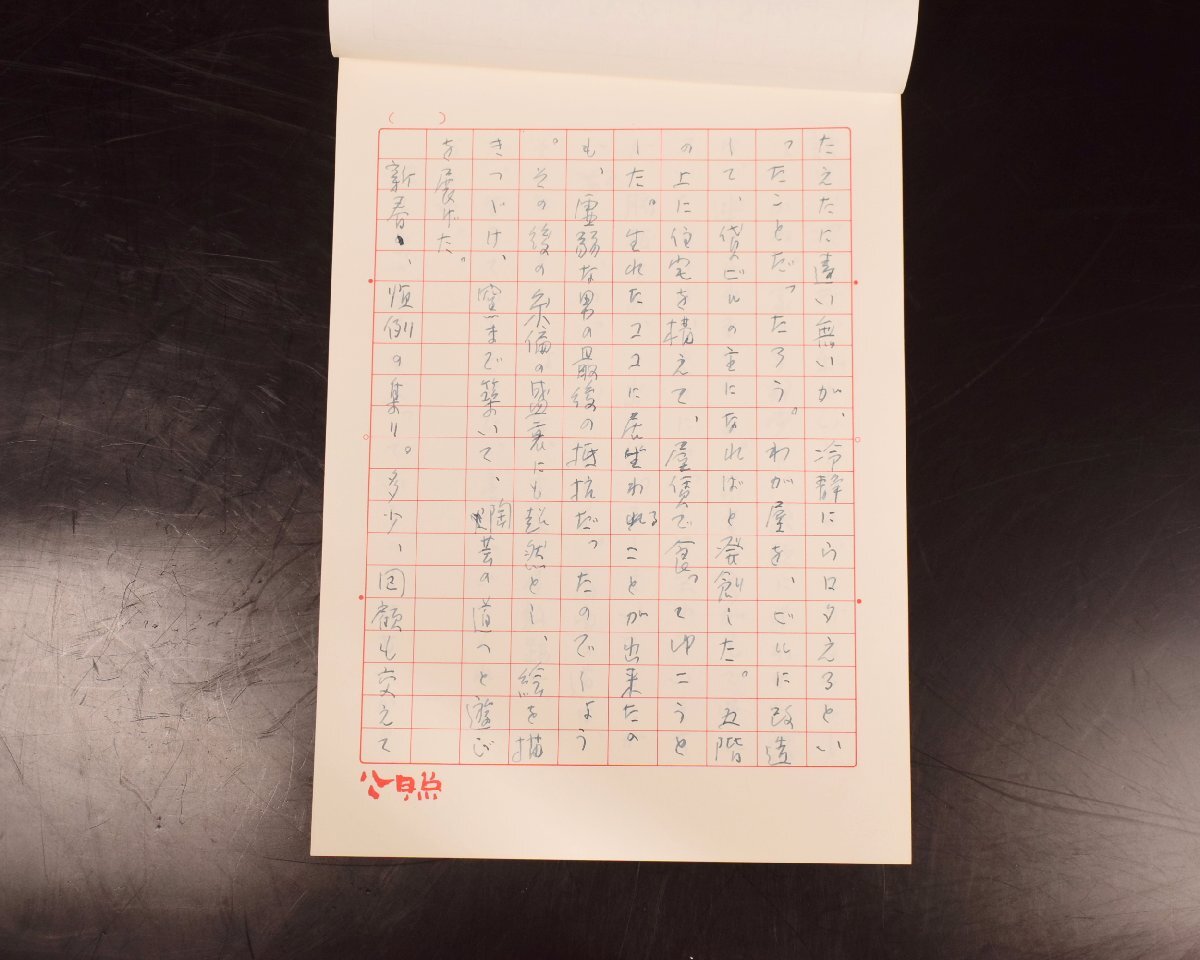 たえたに違い無いが、冷静にうロタえるとい
ったことだったろう。わが屋を、ビルに改造
して、貸ビルの主になればと発創した。五階
の上に住宅を構えて、屋賃で食ってゆこうと
した。生れたココに居坐われることが出来たの
も、虚弱な男の最後の抵抗だったのでしょう
。その後の糸偏の盛衰にも超然とし、絵を描
きつづけ、窯まで築いて、陶芸の道へと遊び
を展げた。
新春、恒例の集り。多少、回顧も交えて